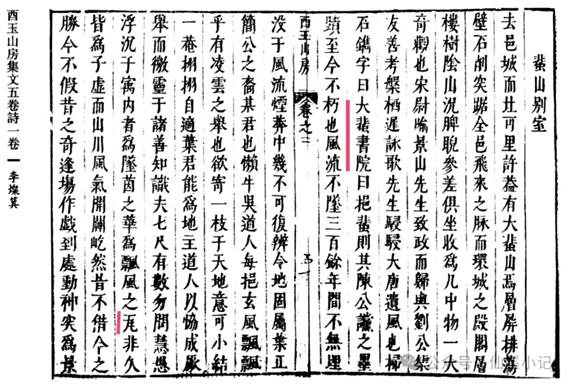 蜚山別室
去邑城而北可里許蓋有大蜚山焉層屏排蕩
壁石削突踞全邑飛來之脉而環城之闍眉
樓樹陰山況睥睨參差俱坐收為几中物一大
奇觀也宋尉景山先生致政而歸與劉公
友善考槃栖遲詠歌先生駸駸大唐遺風也
石鐫字曰大蜚書院曰挹蜚則其陳公讜之墨
蹟至今不朽也風流不墜三百餘年間不無埋
西玉山房 卷之三
没于風流煙莽中幾不可復辨今地固屬葉正
簡公之裔其君也懶牛吳道人每挹玄風飄飄
乎有凌雲之舉也欲寄一枝于天地意可小結
一菴栩栩自適葉君能為地主道人以恊成厥
舉而徵靈于諸善知識夫七尺有數勿問慧愚
浮沉于寓内者為墜茵之華為飄風之瓦非久
皆為子虛而山川風氣開闢屹然昔不借今之
勝今不假昔之奇逢場作戲到處動神突為景
西玉山房集文五卷詩一卷 李燦箕
公众号·仙游小记